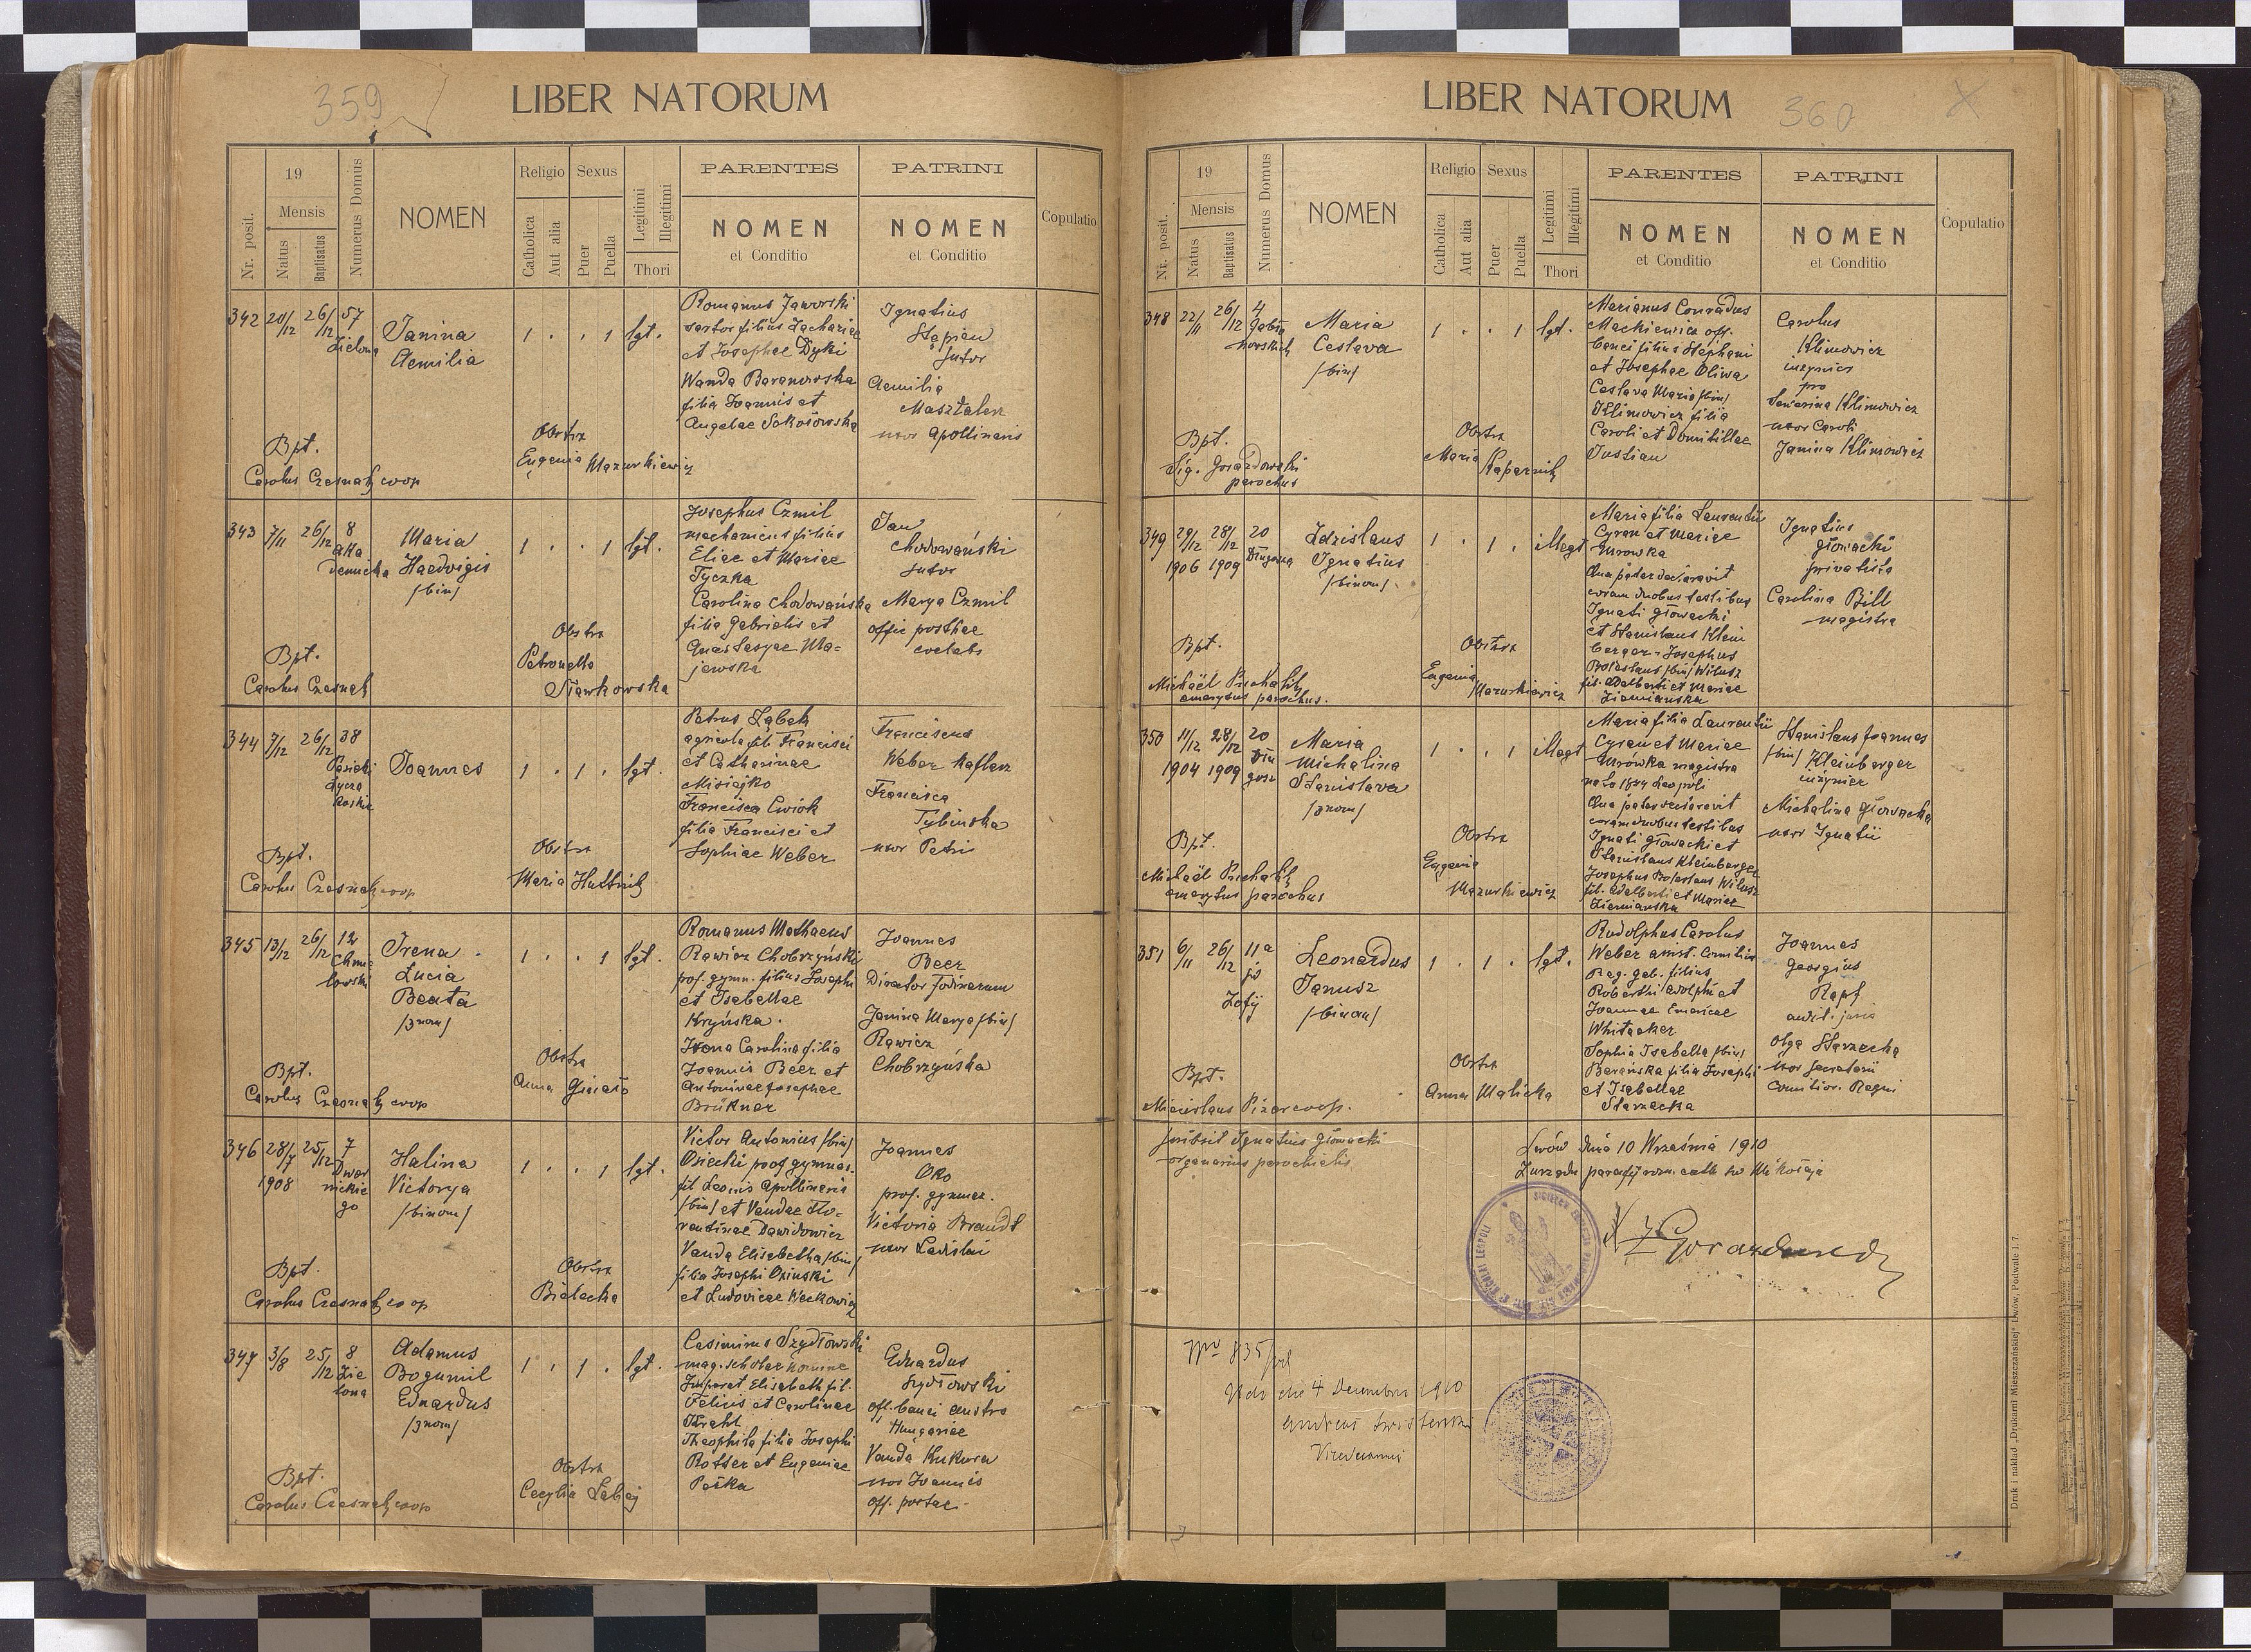 359
LIBER NATORUM
Nr. posit.
19
Mensis
Natus
Baptisatus
Numerus Domus
NOMEN
Religio
Catholica
Aut alia
Sexus
Puer
Puella
Legitimi
Illegitimi
Thori
PARENTES
NOMEN
et Conditio
PATRINI
NOMEN
et Conditio
Copulatio
342 20/12 26/12 57
Zielona
Janina
Aemilia
1 . . 1 lgt.
Romanus Jaworski
sartor filius Zachariae
et Josephae Dyki
Wanda Baranowska
filia Joannis et
Angelae Sokołowska
Ignatius
Stępien
sutor
Aemilia
Masztalerz
uxor Apollinaris
Obstrx
Eugenia Mazurkiewicz
Bpt.
Carolus Czesnak coop
343 7/11 26/12 8
Aka
demicka
Maria
Haedvigis
/bin/
1 . . 1 lgt.
Josephus Czmil
mechanicus filius
Eliae et Mariae
Tyczka
Carolina Chodowańska
filia Gabrielis et
Anastasyae Ma-
jewska
Jan
Chodowański
sutor
Marya Czmil
offic posthae
coelebs
Obstrx
Petronella
Sławkowska
Bpt.
Carolus Czesnak
344 7/12 26/12 38
Pasieki
Łycza
kowskie
Joannes
1 . 1 . lgt.
Petrus Ząbek
agricola fil. Francisci
et Catharinae
Misiejko
Francisca Cwiok
filia Francisci et
Sophiae Weber
Franciscus
Weber kaflarz
Francisca
Tybińska
uxor Petri
Obstrx
Maria Huttnik
Bpt.
Carolus Czesnak coop
345 13/12 26/12 12
Chmie
lowski
Irena
Lucia
Beata
/3nom/
1 . . 1 lgt.
Romanus Mathaeus
Rawicz Chobrzyński
prof. gymn. filius Josephi
et Isabellae
Kryńska.
Ivona Carolina filia
Joannis Beer et
Antoninae Josephae
Brükner
Joannes
Beer
Director fodinarum
Janina Marya /bin/
Rawicz
Chobrzyńska
Obstrx
Anna
Bpt.
Carolus Czesnak coop
346 28/7 25/12 7
1908
Dwer
nickie
go
Halina
Victorya
/binom/
1 . . 1 lgt.
Victor Antonius /bin/
Osiecki prof gymnas.
fil Leonis Apollinaris
/bin/ et Vandae Flo-
rentinae Dawidowicz
Vanda Elisabetha /bin/
filia Josephi Osinski
et Ludovicae Weckowicz
Joannes
Oko
prof. gymnaz.
Victoria Brandt
uxor Ladislai
Obstrx
Bielecka
Bpt.
Carolus Czesnak coop
347 3/8 25/12 8
Zie
lona
Adamus
Bogumil
Eduardus
/3nom/
1 . 1 . lgt.
Casimirus Szydłowski
mag. scholae nomine
Imperat Elisabeth fil.
Felicis et Carolinae
Krahl
Theophila filia Josephi
Rotter et Eugeniae
Peška
Eduardus
Szydłowski
off. banci Austro
Hungariae
Vanda Kukura
uxor Joannis
off. postae.
Obstrx
Cecylia Łabaj
Bpt.
Carolus Czesnak coop
LIBER NATORUM
360
X
Nr. posit.
19
Mensis
Natus
Baptisatus
Numerus Domus
NOMEN
Religio
Catholica
Aut alia
Sexus
Puer
Puella
Legitimi
Illegitimi
Thori
PARENTES
NOMEN
et Conditio
PATRINI
NOMEN
et Conditio
Copulatio
348 22/11 26/12 4
Jabło
nowskich
Maria
Ceslava
/bin/
1 . . 1 lgt.
Marianus Conradus
Mackiewicz off.
banci filius Stephani
et Josephae Oliwa
Ceslava Maria /bin/
Klimowicz filia
Caroli et Domitillae
Justian
Carolus
Klimowicz
inżynier
pro
Severina Klimowicz
uxor Caroli
Janina Klimowicz
Obstrx
Maria Kapernik
Bpt.
Sig. Gorazdowski
parochus
349 29/12 28/12 20
1906 1909 Długosza
Zdzislaus
Ignatius
/binom/
1 . 1 . illegt
Maria filia Laurentii
Cyran et Mariae
Mrowka
Qua pater declaravit
coram duobus testibus
Ignati Głowacki
et Stanislaus Klein
berger - Josephus
Boleslaus /bin/ Wilusz
fil. Adalberti et Mariae
Ziemiańska
Ignatius
Głowacki
privatista
Carolina Bill
magistra
Obstrx
Eugenia
Mazurkiewicz
Bpt.
Michaël
emerytus parochus.
350 11/12 28/12 20
1904 1909 Dłu
gosz
Maria
Michalina
Stanislava
/3nom/
1 . . 1 illegt
Maria filia Laurentii
Cyran et Mariae
Mrowka magistra
nata 1884 Leopoli
Qua pater declaravit
coram duobus testibus
Ignati Głowacki et
Stanislaus Kleinberger
Josephus Boleslaus Wilusz
fil. Adalberti et Mariae
Ziemianska
Stanislaus Joannes
/bin/ Kleinberger
inżynier
Michalina Głowacka
uxor Ignatii
Obstrx
Eugenia
Mazurkiewicz
Bpt.
Michaël
emerytus parochus
351 6/11 26/12 11a
Zofij
Leonardus
Janusz
/binom/
1 . 1 . lgt.
Rudolphus Carolus
Weber
Reg. gal. filius
Roberthi Adolphi et
Joannae Emericae
Whitacker
Sophia Isabella /bin/
Barańska filia Josephi
et Isabellae
Starzecka
Joannes
Georgius
Rapf
audit. juris
Olga Starzecka
uxor Secretarii
Consilior. Regni
Obstrx
Anna Malicka
Bpt.
Micislaus Pizar coop.
Scribsit Ignatius Głowacki
organarius parochialis.
Lwów dnia 10 Września 1910
Zarządu parafij rzym cath sw Mikołaja
Nro 835
die 4 Decembris 1910
Druk i nakład „Drukarni Mieszczańskiej“ Lwów, Podwale l. 7.